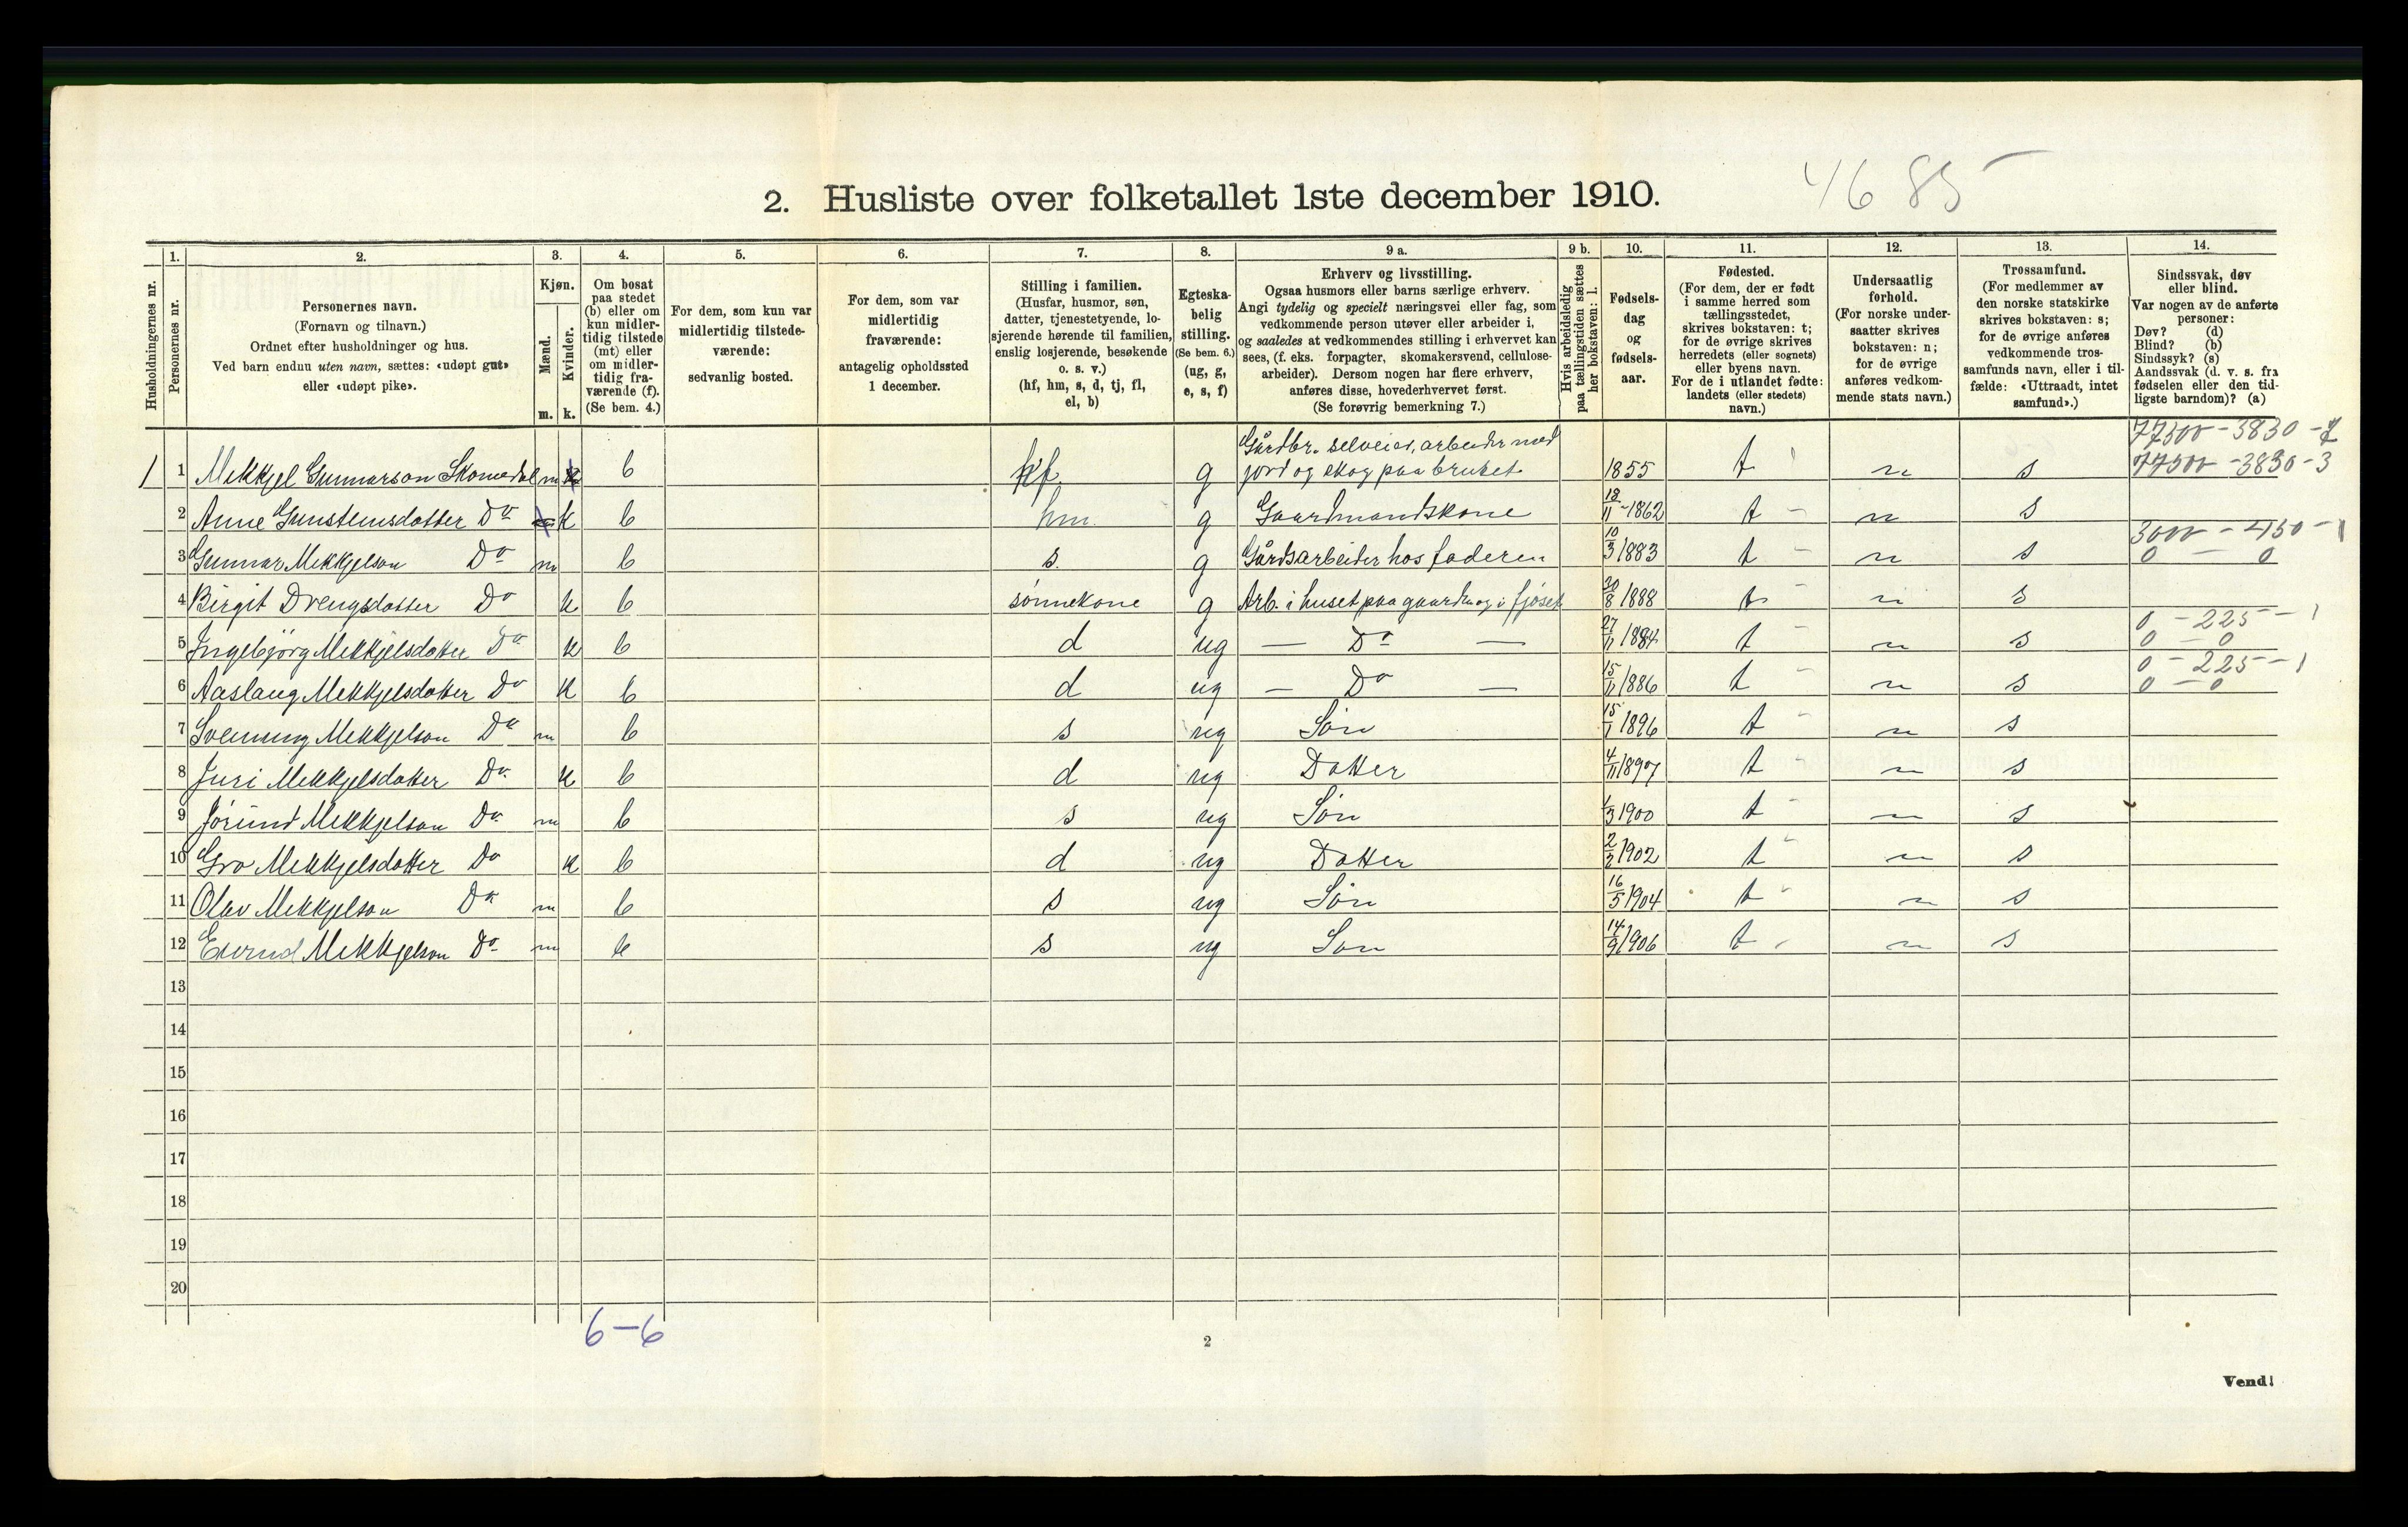 4685
2. Husliste over folketallet 1ste december 1910.
Husholdningernes nr.
1.
Personernes nr.
2.
Personernes navn.
(Fornavn og tilnavn.)
Ordnet efter husholdninger og hus.
Ved barn endnu uten navn, sættes: «udøpt gut»
eller «udøpt pike».
3.
Kjøn.
Mænd.
Kvinder.
m. k.
4.
Om bosat
paa stedet
(b) eller om
kun midler-
tidig tilstede
(mt) eller
om midler-
tidig fra-
værende (f).
(Se bem. 4.)
5.
For dem, som kun var
midlertidig tilstede-
værende:
sedvanlig bosted.
6.
For dem, som var
midlertidig
fraværende:
antagelig opholdssted
1 december.
7.
Stilling i familien.
(Husfar, husmor, søn,
datter, tjenestetyende, lo-
sjerende hørende til familien,
enslig losjerende, besøkende
o. s. v.)
(hf, hm, s, d, tj, fl,
el, b)
8.
Egteska-
belig
stilling.
(Se bem. 6.)
(ug, g,
e, s, f)
9 a.
Erhverv og livsstilling.
Ogsaa husmors eller barns særlige erhverv.
Angi tydelig og specielt næringsvei eller fag, som
vedkommende person utøver eller arbeider i,
og saaledes at vedkommendes stilling i erhvervet kan
sees, (f. eks. forpagter, skomakersvend, cellulose-
arbeider). Dersom nogen har flere erhverv,
anføres disse, hovederhvervet først.
(Se forøvrig bemerkning 7.)
9 b.
Hvis arbeidsledig
paa tællingstiden sættes
her bokstaven: l.
10.
Fødsels-
dag
og
fødsels-
aar.
11.
Fødested.
(For dem, der er født
i samme herred som
tællingsstedet,
skrives bokstaven: t;
for de øvrige skrives
herredets (eller sognets)
eller byens navn.
For de i utlandet fødte:
landets (eller stedets)
navn.)
12.
Undersaatlig
forhold.
(For norske under-
saatter skrives
bokstaven: n;
for de øvrige
anføres vedkom-
mende stats navn.)
13.
Trossamfund.
(For medlemmer av
den norske statskirke
skrives bokstaven: s;
for de øvrige anføres
vedkommende tros-
samfunds navn, eller i til-
fælde: «Uttraadt, intet
samfund».)
14.
Sindssvak, døv
eller blind.
Var nogen av de anførte
personer:
Døv? (d)
Blind? (b)
Sindssyk? (s)
Aandssvak (d. v. s. fra
fødselen eller den tid-
ligste barndom)? (a)
77500 - 3830 - 7
Gårdbr. selveier, arbeider med
1 1 Mekkjel Gunnarson Skomedal m b hf g jord og skog paa bruket 1855 t n s 77500 - 3830 - 3
2 Anne Gunsteinsdotter Do k b hm g Gaardmandskone 18/11 1862 t n s
3000 - 450 - 1
3 Gunnar Mekkjelson Do m b s. g Gårdsarbeider hos faderen 10/3 1883 t n s 0 - 0
4 Birgit Drengsdotter Do k b sønnekone g Arb. i huset paa gaarden og i fjöset 30/8 1888 t n s
0 - 225 - 1
5 Ingebjörg Mekkjelsdotter Do k b d ug — Do — 27/11 1884 t n s 0 - 0
0 - 225 - 1
6 Aaslaug Mekkjelsdotter Do k b d ug — Do — 15/11 1886 t n s 0 - 0
7 Svenung Mekkjelson Do m b s ug Sön 15/1 1896 t n s
8 Juri Mekkjelsdotter Do k b d ug Dotter 4/11 1897 t n s
9 Jörund Mekkjelson Do m b s ug Sön 1/3 1900 t n s
10 Gro Mekkjelsdotter Do k b d ug Dotter 2/2 1902 t n s
11 Olav Mekkjelson Do m b s ug Sön 16/5 1904 t n s
12 Eivind Mekkjelson Do m b s ug Son 14/9 1906 t n s
13
14
15
16
17
18
19
20
6-6
2
Vend!